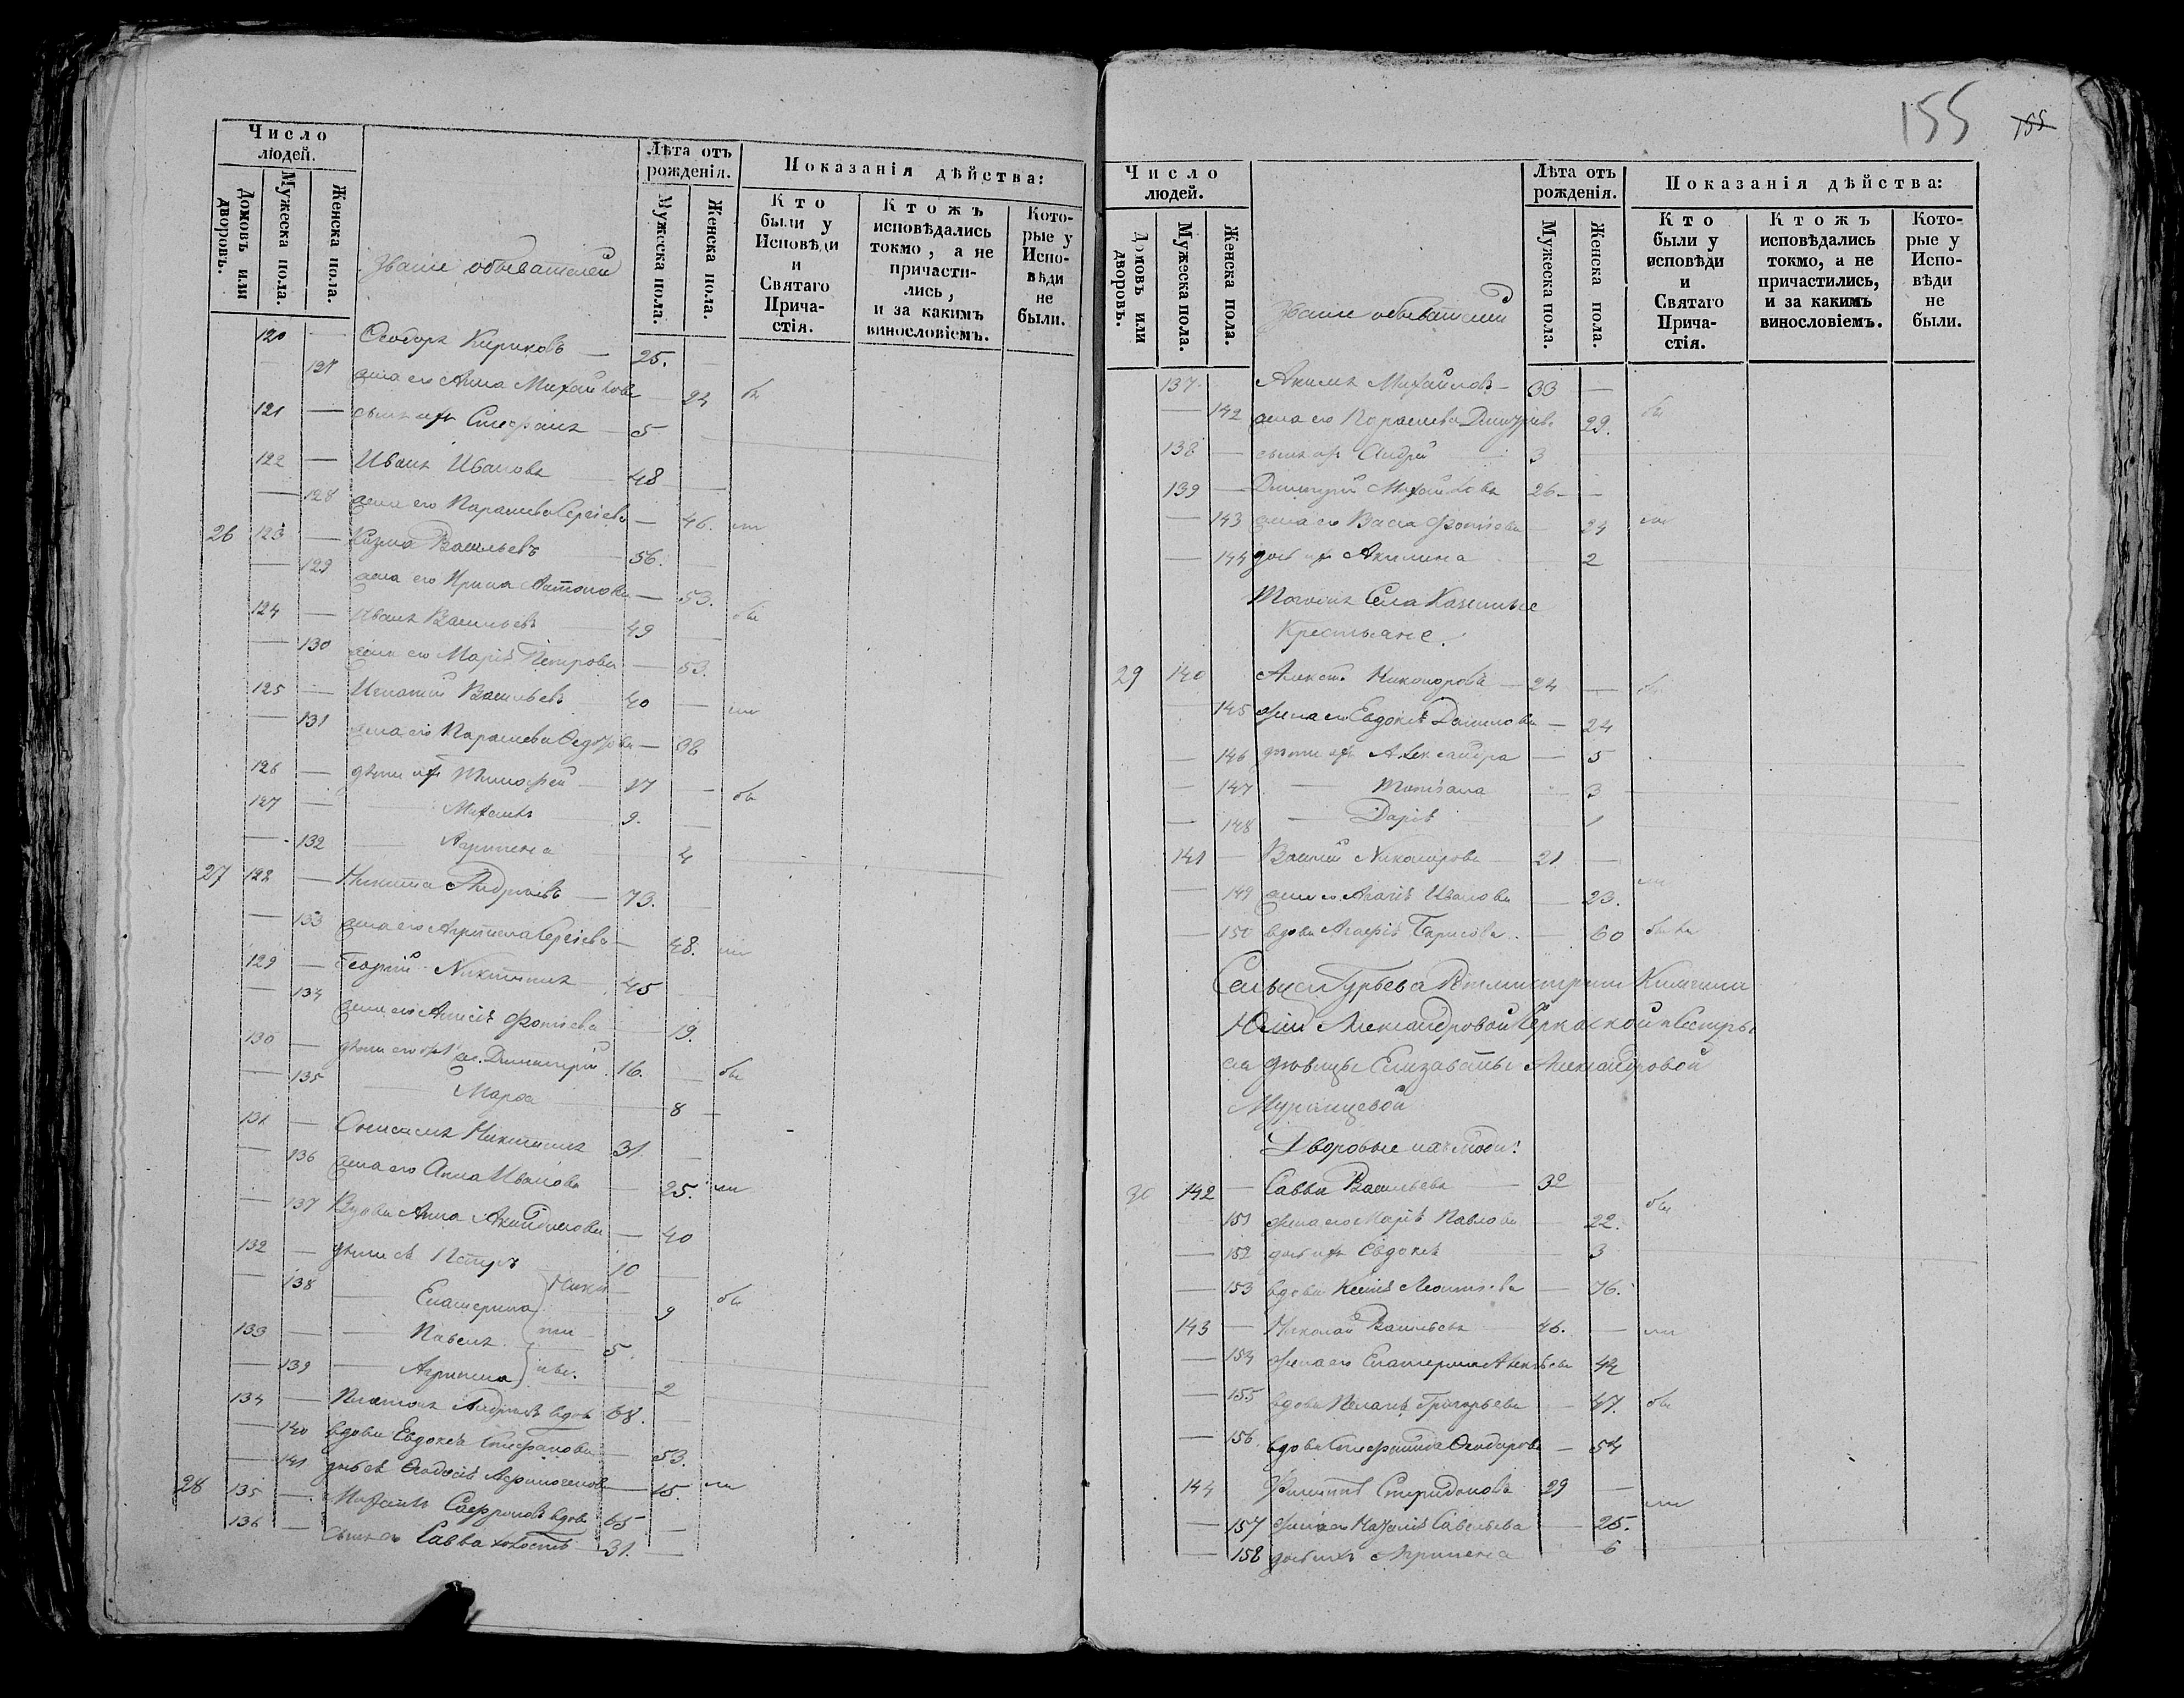 Число людей.
Домовъ или дворовъ.
Мужеска пола.
Женска пола.
Званіе обывателей
Лѣта отъ рожденія.
Мужеска пола.
Женска пола.
Показанія дѣйства:
Кто были у Исповѣди и Святаго Причастія.
Ктожъ исповѣдались токмо, а не причастились, и за какимъ винословіемъ.
Которые у Исповѣди не были.
120 — Ѳеодоръ Кириковъ — 25. —
127 жена его Анна Михайлова — 24 бы
121 — сынъ ихъ Стефанъ — 5
122 — Иванъ Ивановъ 48 —
— 128 жена его Параскева Сергіева — 46. ли
26 123 — Козма Васильевъ 56. —
— 129 жена его Ирина Антонова — 53.
124 — Иванъ Васильевъ — 49 — бы
— 130 жена его Марія Петрова — 53.
125 — Игнатій Васильевъ 40 — ли
— 131 жена его Параскева Ѳедорова — 38
126 — дѣти ихъ Тимофей — 17 — бы
127 — — Михаилъ 9. —
— 132 — Агрипена 4
27 122 — Никита Андреевъ — 73. —
— 133 жена его Агрипена Сергіева — 48. ли
129 — Георгій Никитинъ 45 —
— 134 жена его Анисія Фотіева 19.
130 — дѣти его Димитрій 16. — бы
— 135 — Марѳа — 8 —
131 — Онисимъ Никитинъ 31. —
— 136 жена его Анна Иванова — 25. ли
— 137 Вдова Анна Акиндинова — 40
132 — дѣти ея Петръ 10 —
— 138 — Екатерина — 9 бы
Ники
133 — — Павелъ 5.
ти
— 139 — Агрипена 2
ны.
134 — Платонъ Андреевъ вдовъ 68. —
— 140 вдова Евдокія Стефанова — 53.
— 141 дочь ея Ѳеодосія — 15. ли
28 135 — Михаилъ Сафроновъ вдовъ 65 —
136 — сынъ его Савва холостъ — 31. —
155
155
Число людей.
Домовъ или дворовъ.
Мужеска пола.
Женска пола.
Званіе обывателей
Лѣта отъ рожденія.
Мужеска пола.
Женска пола.
Показанія дѣйства:
Кто были у исповѣди и Святаго Причастія.
Ктожъ исповѣдались токмо, а не причастились, и за какимъ винословіемъ.
Которые у Исповѣди не были.
137. Акимъ Михайловъ — 33 —
— 142 жена его Параскева Димитріева 29. бы
138 — сынъ ихъ Андрей — 3
139 — Димитрій Михайловъ 26 — —
— 143 жена его Васса Фотіева — 24 ли
— 144 дочь ихъ Акилина 2
Тогожъ Села Казенные
Крестьяне.
29 140 Алексѣй Никоноровъ — 24 — бы
145 жена его Евдокія Данилова — 24
— 146 дѣти ихъ Александра — 5
— 147 — Татіана 3
— 148 — Дарія 1
141 — Василій Никоноровъ — 21 —
— 149 жена его Агапія Иванова — 23. ли
— 150 вдова Агафія Борисова — 60 была
Сельца Гурьева Ротмистрши Княгини
Юліи Александровой Черкаской и Сестры
ея дѣвицы Елизаветы Александровой
Муромцевой
Дворовые ихъ люди:
30 142 — Савва Васильевъ — 32
— 151 жена его Марія Павлова — 22. бы
— 152 дочь ихъ Евдокія 3
— 153 вдова Ксенія Леонтьева — 76.
143 — Николай Васильевъ — 46. — ли
— 154 жена его Екатерина Алексѣева 42
— 155 вдова Пелагія Григорьева — 47. бы
— 156 вдова Стефанида Ѳеодорова — 54
144 Филиппъ Спиридоновъ 29 —
— 157 жена его Наталія Савельева — 25. ли
— 158 дочь ихъ Агрипена 6